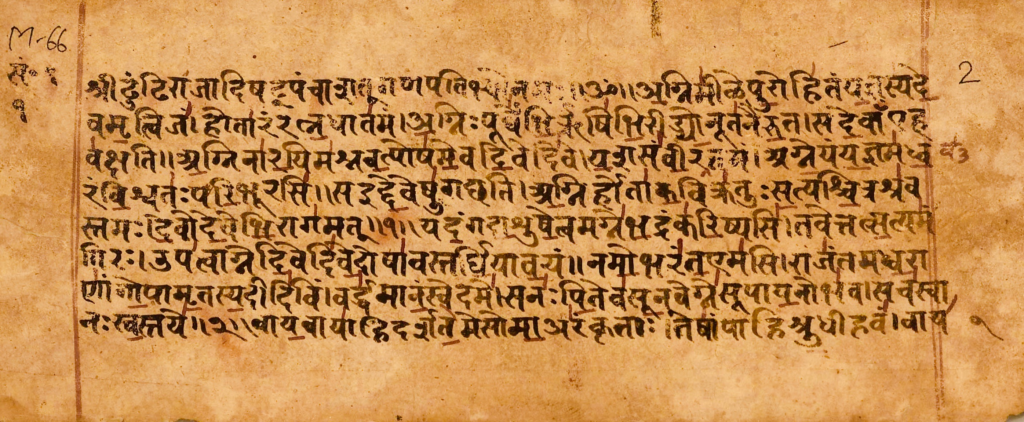 M-66
2
सं॰ १
१
श्री ढुंढिराजादिषट्पंचा गणपति नमः॥ॐ॥अग्निमीळेपुरोहितंयज्ञस्यदे
वमृत्विजं।होतारंरत्नधातमं।अग्निःपूर्वेभिर्ऋषिभिरीड्योनूतनैरुत।सदेवाँएह
वक्षति॥अग्निनारयिमश्नवत्पोषमेवदिवेदिवे।यशसंवीरवत्तमं।अग्नेयंयज्ञमध्व
रंविश्वतःपरिभूरसि॥सइद्देवेषुगच्छति।अग्निर्होताकविक्रतुःसत्यश्चित्रश्रव
स्तमः।देवोदेवेभिरागमत्॥१॥यदंगदाशुषेत्वमग्नेभद्रंकरिष्यसि।तवेत्तत्सत्यमं
गिरः।उपत्वाग्नेदिवेदिवेदोषावस्तर्धियावयं॥नमोभरंतएमसि।राजंतमध्वरा
णांगोपामृतस्यदीदिविं।वर्द्धमानंस्वेदमे।सनःपितेवसूनवेग्नेसूपायनोभव।सचस्वा
नःस्वस्तये॥२॥वायवायाहिदर्शतेमेसोमाअरंकृताः।तेषांपाहिश्रुधीहवं।वाय